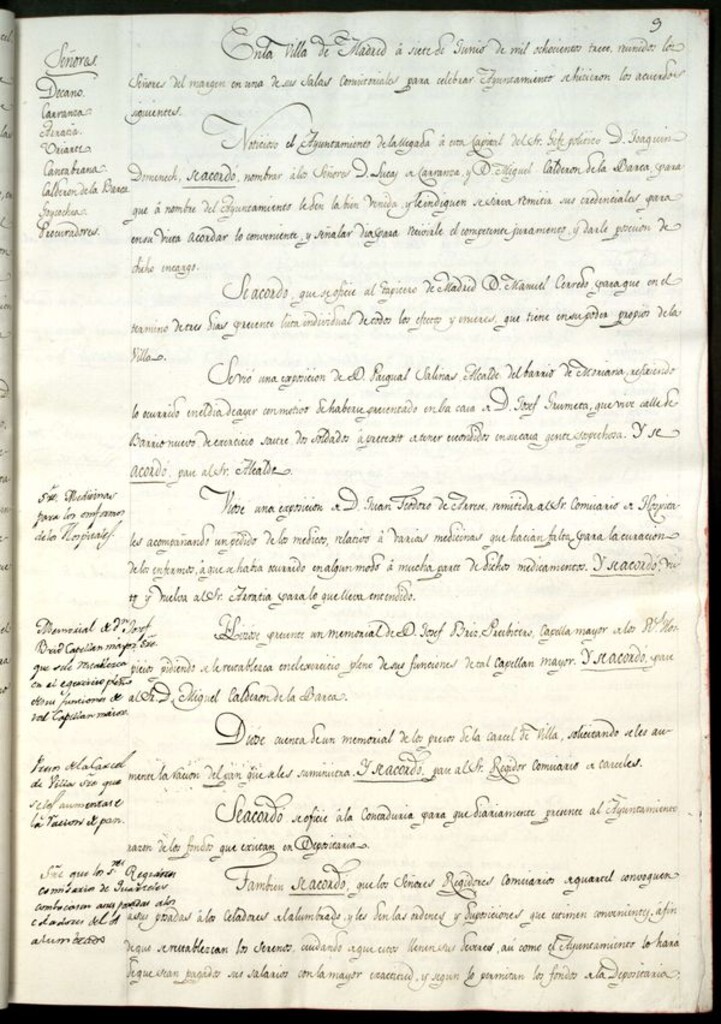 9
Señores.
Decano.
Carranza.
Arratia.
Uriarte.
Cantabrana.
Calderon de la Barca
Goycochea.
Procuradores.
En la Villa de Madrid à siete de Junio de mil ochocientos trece, reunidos los
Señores del margen en una de sus Salas Consistoriales para celebrar Ayuntamiento se hicieron los acuerdos
siguientes.
Noticioso el Ayuntamiento de la llegada à esta Capital del Sr. Gefe politico D. Joaquin
Domenech, se acordó, nombrar à los Señores D. Lucas de Carranza, y D. Miguel Calderon de la Barca, para
que à nombre del Ayuntamiento le den la bien venida, y le indiquen se sirva remitir sus credenciales para
en su vista acordar lo conveniente, y señalar dia para recivirle el competente juramento, y darle posesion de
dicho encargo.
Se acordó, que se oficie al tapicero de Madrid D. Manuel Cerredo para que en el
termino de tres dias presente lista individual de todos los efectos y enseres, que tiene en su poder propios de la
Villa.
Se vió una exposicion de D. Pasqual Salinas, Alcalde del barrio de Moriana, refiriendo
lo ocurrido en el dia de ayer con motivo de haberse presentado en la casa de D. Josef Grumeta, que vive calle de
Barrionuevo de exercicio sastre dos soldados à pretexto de tener escondidos en su casa gente sospechosa. Y se
acordó, pase al Sr. Alcalde.
Sre. Medicinas
para los enfermos
de los Hospitales.
Viose una exposicion de D. Juan Teodoro de Arrese, remitida al Sr. Comisario de Hospita-
les acompañando un pedido de los medicos, relativo à varias medicinas que hacian falta para la curacion
de los enfermos, à que se habia ocurrido en algun modo à mucha parte de dichos medicamentos. Y se acordó,
y vuelva al Sr. Arratia para lo que lleva entendido.
Memorial de Dn. Josef
Brid Capellan mayor Sre.
que se le restablezca
en el egercicio pleno
de sus funciones de
tal Capellan mayor.
Hizose presente un memorial de D. Josef Brid, Presbitero, Capellan mayor de los Rs. Hos-
picios pidiendo se le restablezca en el exercicio pleno de sus funciones de tal Capellan mayor. Y se acordó, pase
al Sr. D. Miguel Calderon de la Barca.
Presos de la Carcel
de Villa Sre. que
se les aumentase
la Racion de pan.
Diose cuenta de un memorial de los presos de la carcel de Villa, solicitando se les au-
mente la racion del pan que se les suministra. Y se acordó, pase al Sr. Regidor Comisario de carceles.
Se acordó se oficie à la Contaduria para que diariamente presente al Ayuntamiento
razon de los fondos que existan en Depositaria.
Sre. que los Sres. Regidores
comisarios de Quarteles
combocaran a sus posadas a los
celadores del
alumbrado
Tambien se acordó, que los Señores Regidores Comisarios de quartel convoquen
a sus posadas à los Celadores de alumbrado, y les den las ordenes y disposiciones que estimen convenientes, à fin
de que se restablezcan los Serenos, cuidando de que estos llenen sus deveres, asi como el Ayuntamiento lo hará
de que sean pagados sus salarios con la mayor exactitud, y segun lo permitan los fondos de la Depositaria.